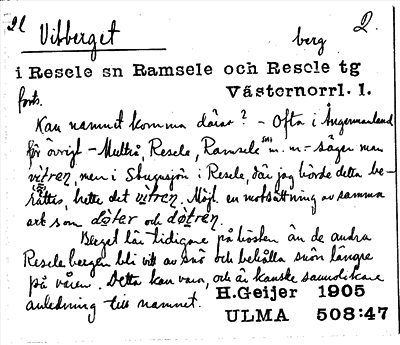 Vitberget berg 2.
i Resele sn Ramsele och Resele tg
forts. Västernorrl. l.
Kan namnet komma därav? - Ofta i Ångermanland
för övrigt - Multrå, Resele, Ramsele sn m. m. - säger man
vitren, men i Skugsjön i Resele, där jag hörde detta be-
rättas, hette det vitren. Möjl. en motsättning av samma
art som dåter och dåtren.
Berget lär tidigare på hösten än de andra
Reselebergen bli vitt av snö och behålla snön längre
på våren. Detta kan vara, och är kanske sannolikare
anledning till namnet. H.Geijer 1905
ULMA 508:47